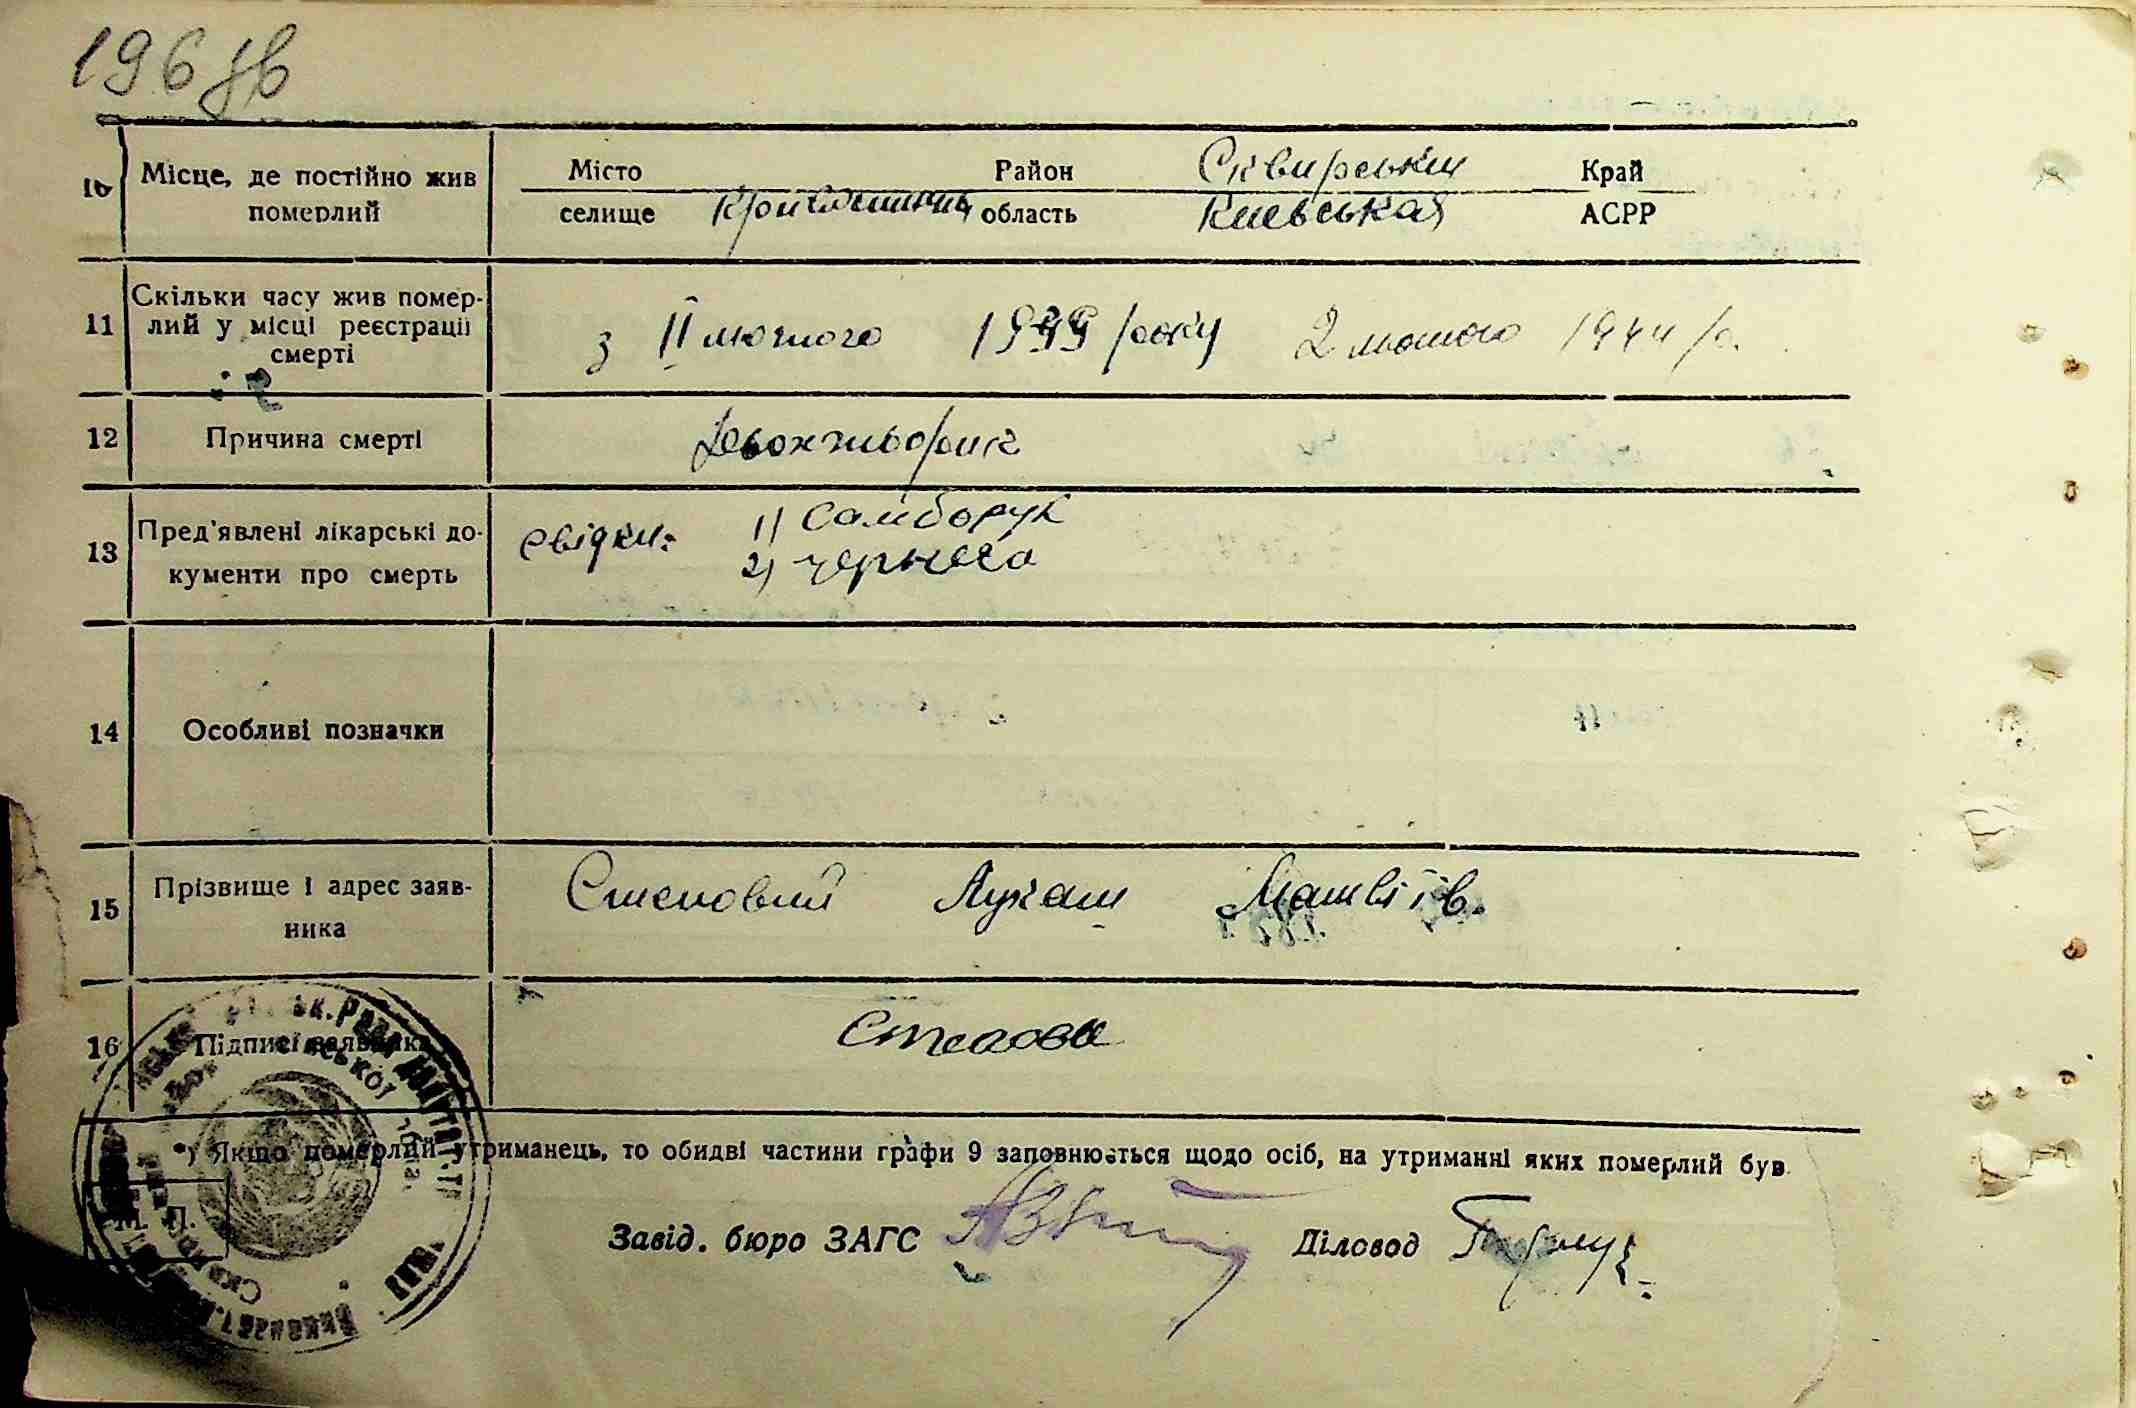 196 зв
10 Місце, де постійно жив померлий
Місто Район Сквирський Край
селище область Киевськая АСРР
11 Скільки часу жив помер-
лий у місці реєстрації
смерті
з 11 лютого року 2 лютого 1944 р.
12 Причина смерті
13 Пред'явлені лікарські до-
кументи про смерть
свідки: 1) Самборук
2) Чернега
14 Особливі позначки
15 Прізвище і адрес заяв-
ника
Степовий Лукаш Матвіїв.
16 Підпис заявника
*) Якщо померлий утриманець, то обидві частини графи 9 заповнюються щодо осіб, на утриманні яких померлий був
М. П.
Завід. бюро ЗАГС Діловод